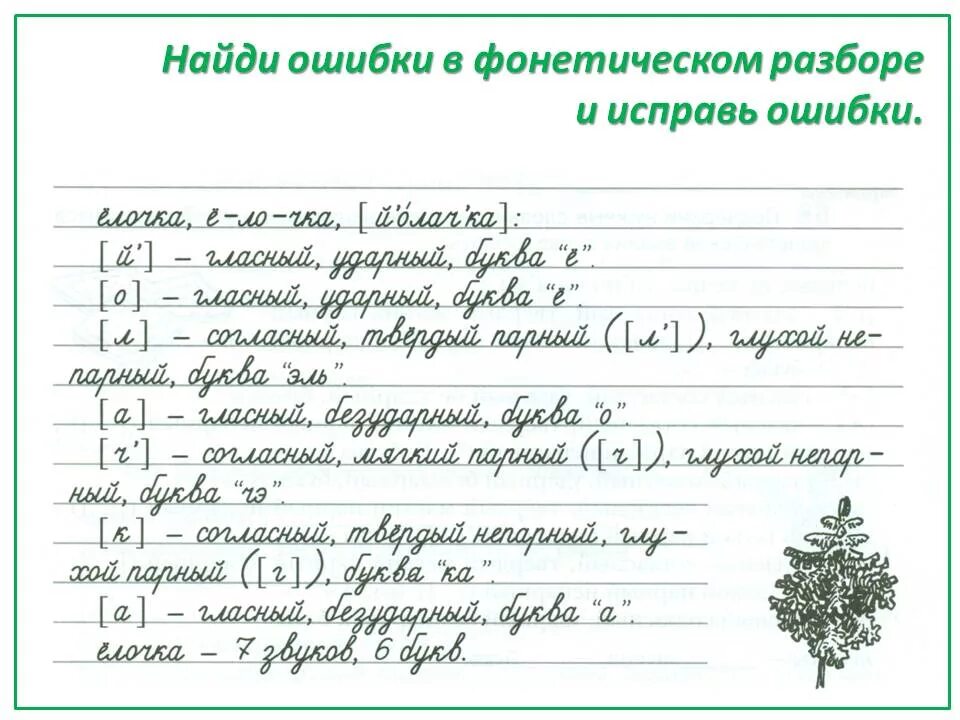 Найди ошибки в фонетическом разборе
и исправь ошибки.
ёлочка, ё-ло-чка, [й'о́лач'ка]:
[й'] – гласный, ударный, буква "ё".
[о] – гласный, ударный, буква "ё"
[л] – согласный, твёрдый парный ([л']), глухой не-
парный, буква "эль".
[а] – гласный, безударный, буква "о".
[ч'] – согласный, мягкий парный ([ч]), глухой непар-
ный, буква "чэ".
[к] – согласный, твёрдый непарный, глу-
хой парный ([г]), буква "ка".
[а] – гласный, безударный, буква "а"
ёлочка – 7 звуков, 6 букв.